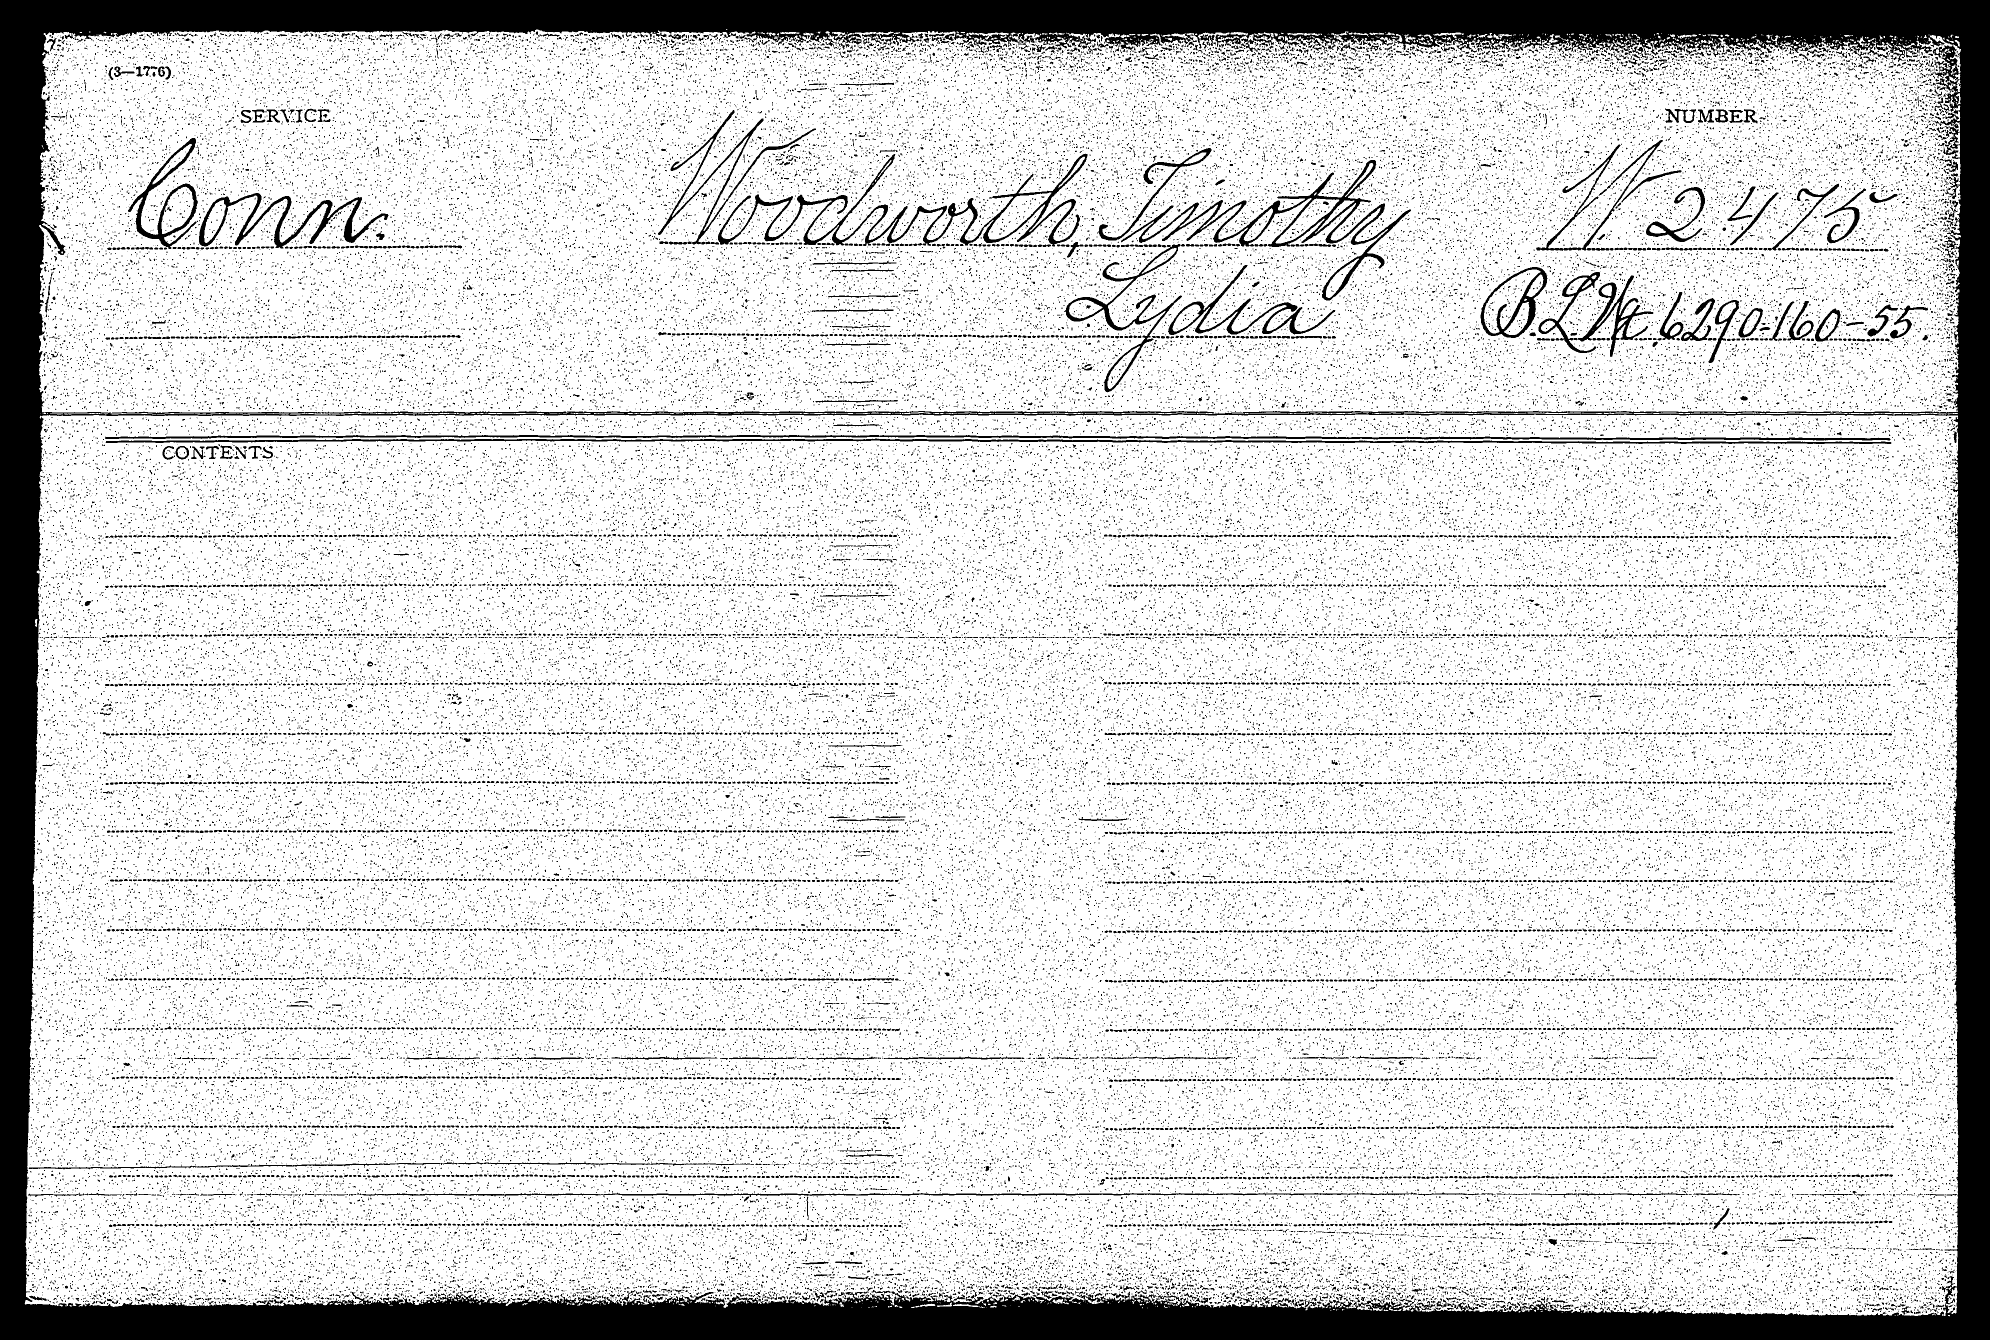 (3—1776)
SERVICE
NUMBER
Conn.
Woodworth, Timothy
W. 2475
Lydia
B.L.Wt. 6290-160-55.
CONTENTS